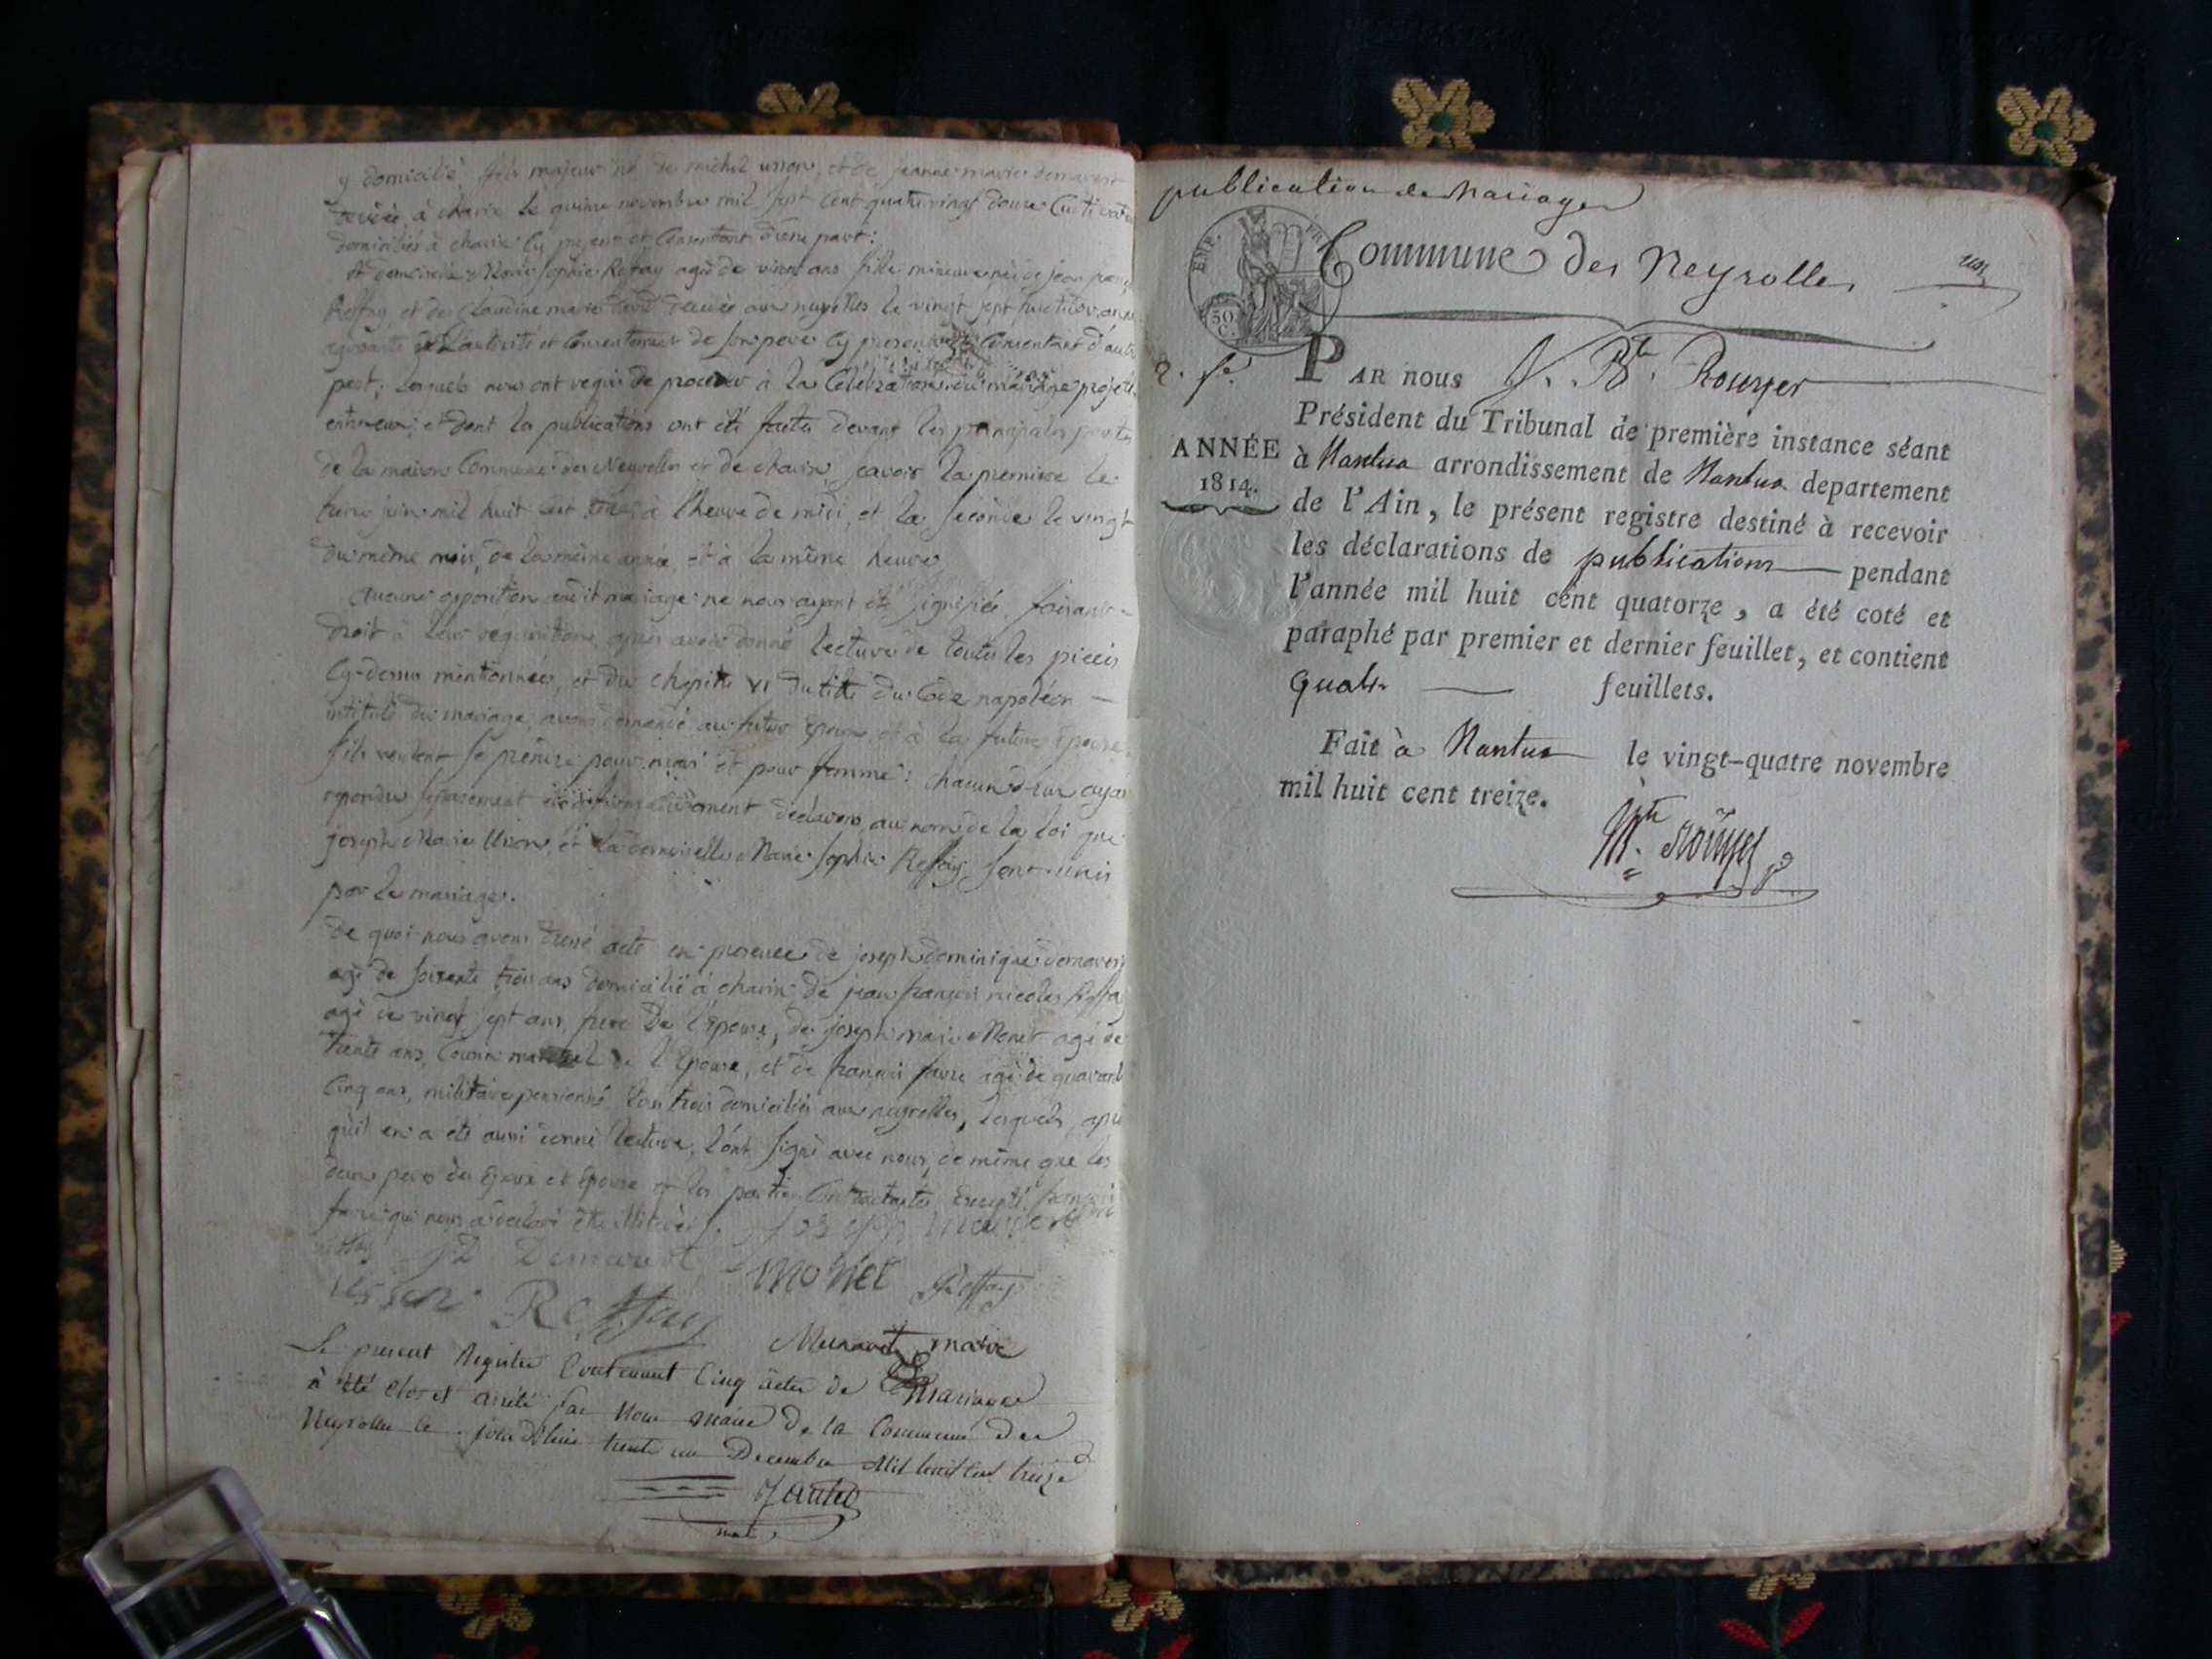 y domicilié, fils majeur né de michel
décédée à charix le quinze novembre mil sept cent quatre vingt douze
domiciliés à charix cy présent et consentant d'une part:
et demoiselle Marie Sophie Reffay agée de vingt ans fille mineure née de jean
Reffay, et de Claudine marie décédée aux neyrolles le vingt sept fructidor
de l'autorité et Consentement de son pere cy present et Consentant d'autre
part; lesquels nous ont requis de proceder à la Célébration du mariage projetté
entr'eux; et dont les publications ont été faites devant les principales portes
de la maison Commune des Neyrolles et de charix, scavoir la premiere le
treize juin mil huit cent treize à l'heure de midi, et la seconde le vingt
du même mois, de la même année, et à la même heure
Aucune opposition audit mariage ne nous ayant été signifiée, faisant
droit à leur requisition, après avoir donné lecture de toutes les pièces
cy-dessus mentionnées, et du chapitre VI du titre du Code napoléon —
intitulé du mariage, avons demandé au futur époux, et à la future épouse
s'ils veulent se prendre pour mari et pour femme: chacun d'eux ayant
repondu séparement et affirmativement declarons, au nom de la loi que
joseph Marie et la demoiselle Marie Sophie Reffay sont unis
par le mariage.
de quoi nous avons dressé acte en presence de joseph dominique demarest
agé de soixante trois ans domicilié à charix de jean françois nicolas Reffay
agé de vingt sept ans, frere De l'Epouse, de joseph marie Monet agé de
trente ans, Cousin maternel de l'Epouse, et de françois favre agé de quarante
Cinq ans, militaire pensionné tous trois domiciliés aux neyrolles, lesquels, après
qu'il en a été aussi donné lecture, l'ont signé avec nous, de même que les
deux peres des Epoux et Epouse et les parties Contractantes Excepté françois
favre qui nous a declaré être illitéré.
J D Demarest Monet Reffay
Reffay
Le present Registre Contenant Cinq actes de Mariage
à été clos et arrêté par Nous maire De la Commune des
Neyrolles le jourd'hui trente un Decembre Mil huit cent treize
publication de Mariages
EMP. FR
Commune des Neyrolles
un
50 C.
PAR nous J. Bte. Rouyer
Président du Tribunal de première instance séant
ANNÉE
1814.
à Nantua arrondissement de Nantua departement
de l'Ain, le présent registre destiné à recevoir
les déclarations de publications — pendant
l'année mil huit cent quatorze, a été coté et
paraphé par premier et dernier feuillet, et contient
quatre — feuillets.
Fait à Nantua le vingt-quatre novembre
mil huit cent treize.
Rouyer